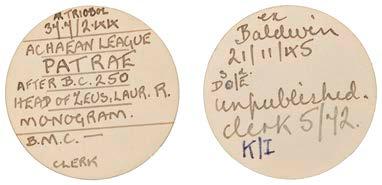 AR TRIOBOL
ACHAEAN LEAGUE
PATRAE
AFTER B.C. 250
HEAD OF ZEUS, LAUR. R.
MONOGRAM.
B.M.C. —
CLERK
ex
Baldwin
unpublished.
clerk 5/42.
K/I